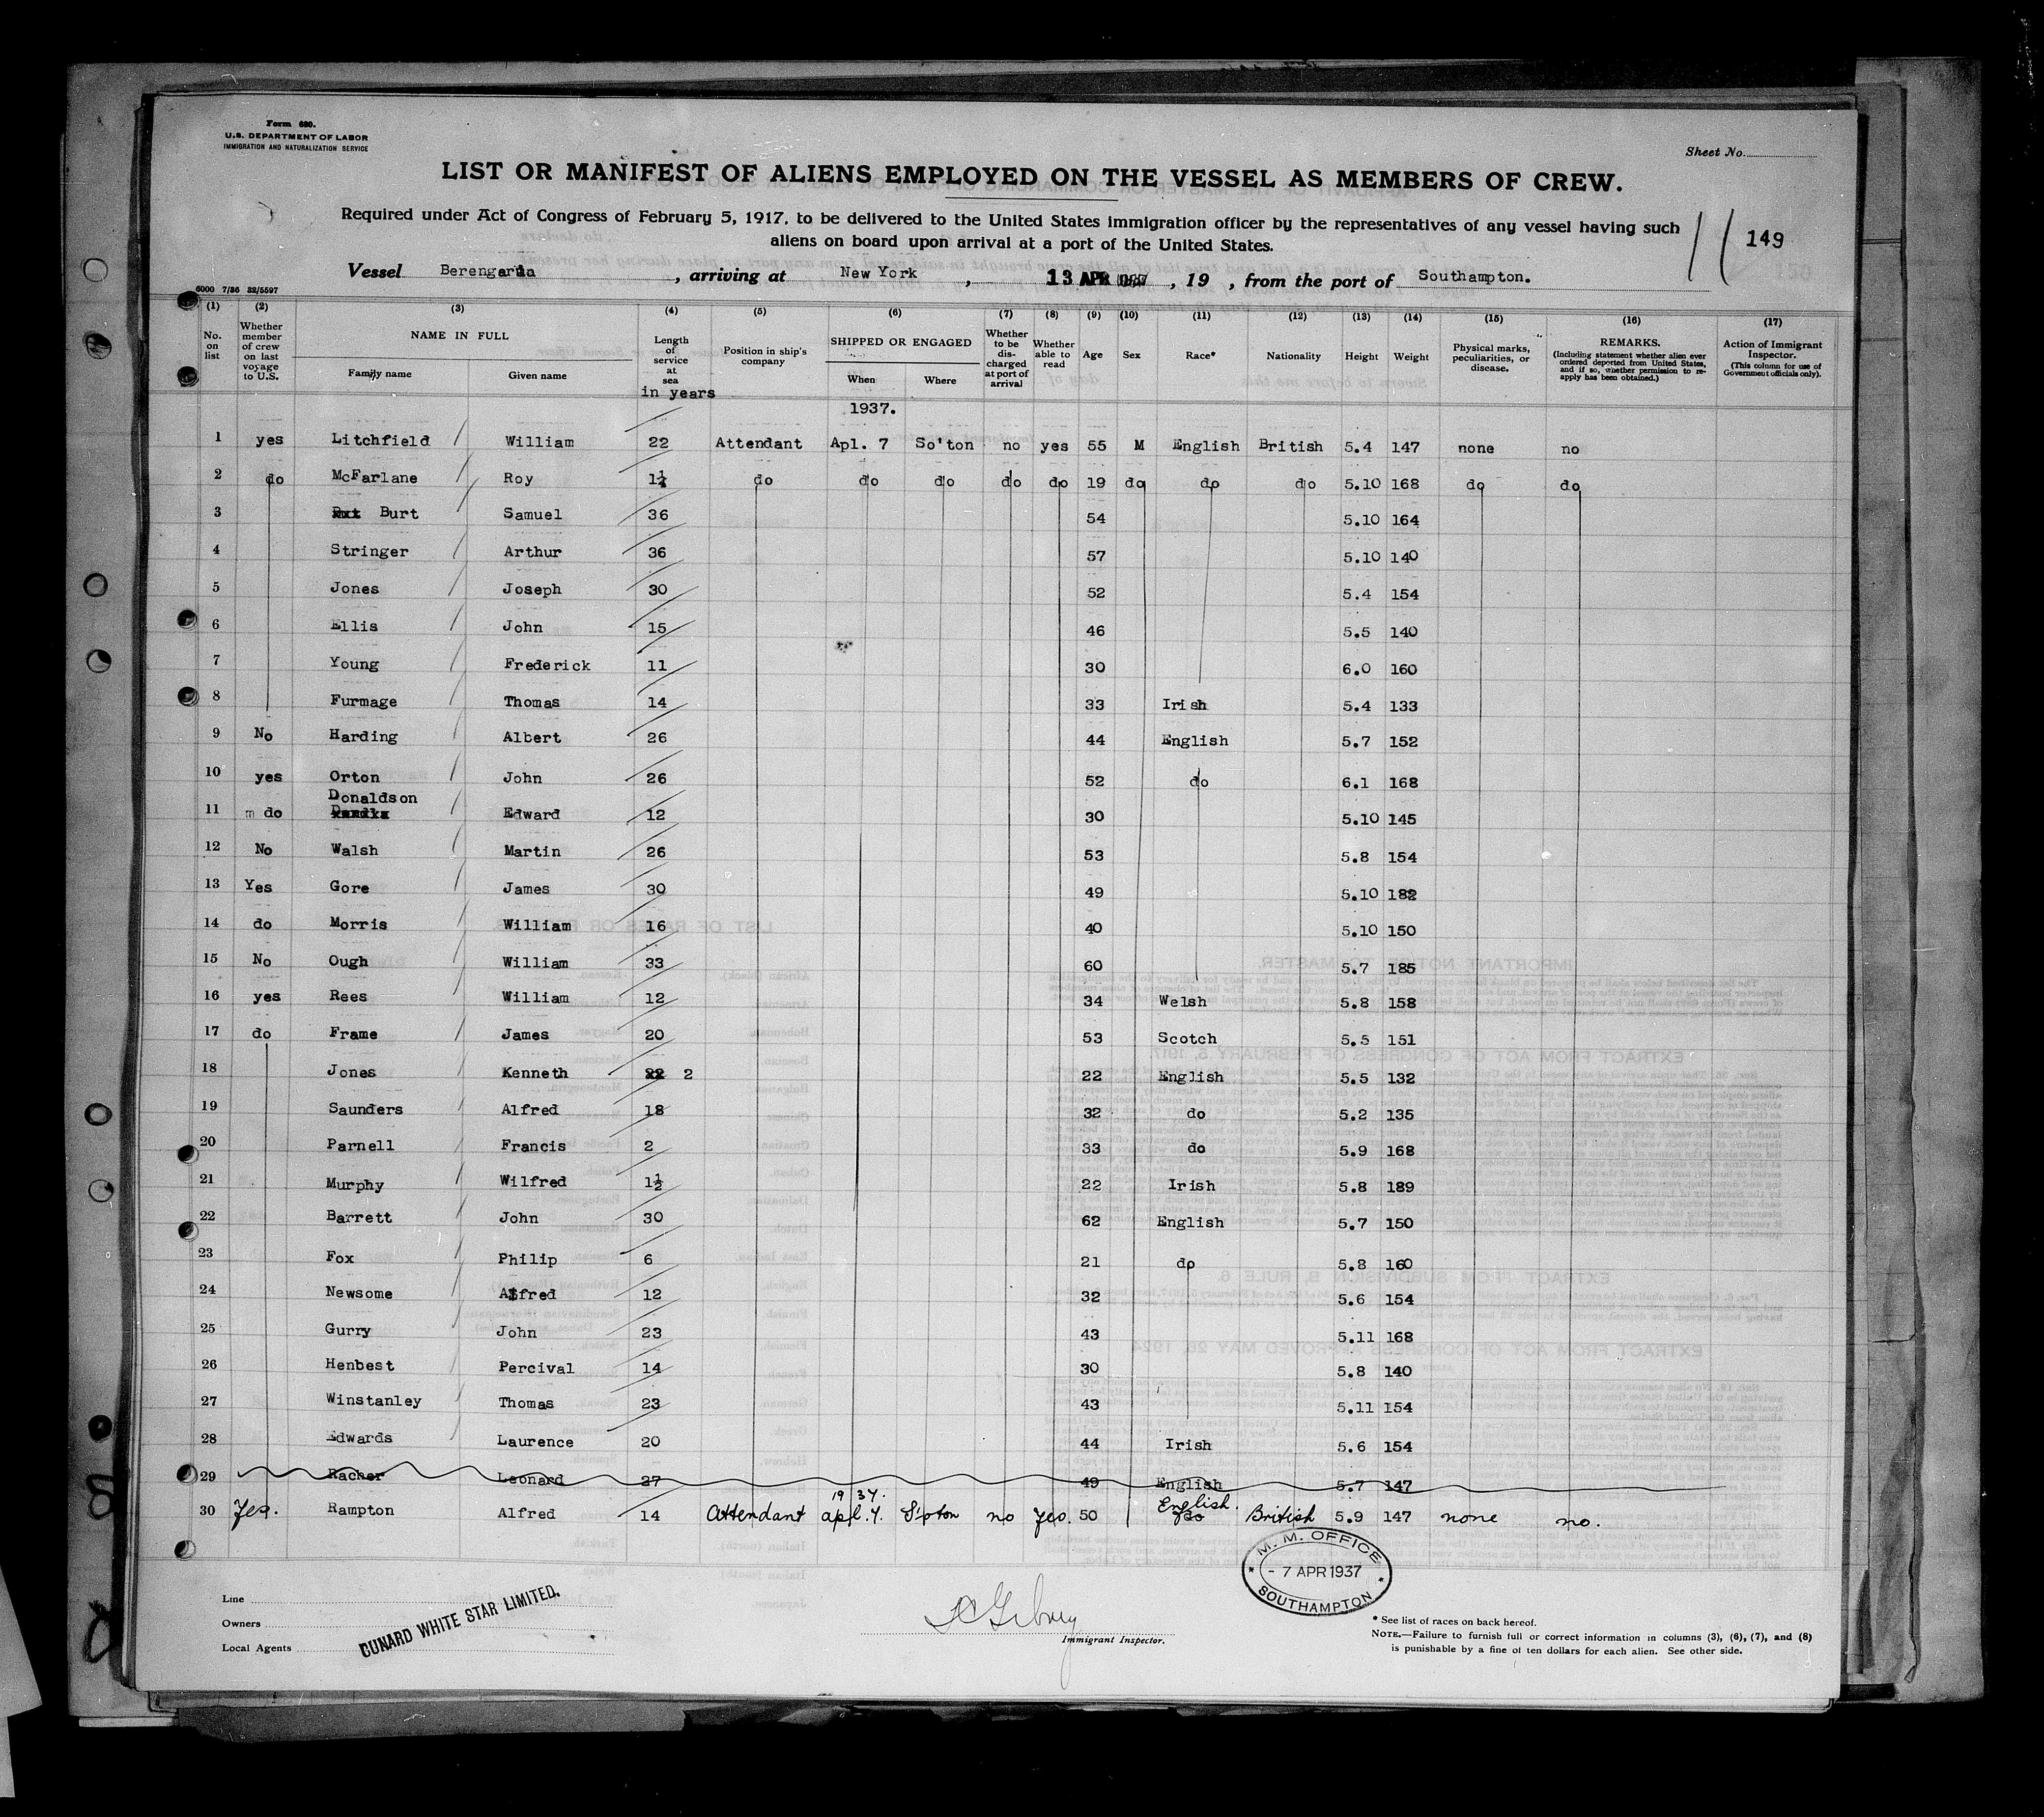 Form 680.
U.S. DEPARTMENT OF LABOR
IMMIGRATION AND NATURALIZATION SERVICE
Sheet No.
LIST OR MANIFEST OF ALIENS EMPLOYED ON THE VESSEL AS MEMBERS OF CREW.
Required under Act of Congress of February 5, 1917, to be delivered to the United States immigration officer by the representatives of any vessel having such
aliens on board upon arrival at a port of the United States.
149
Vessel Berengaria, arriving at New York, 13 APR 1937, 19 , from the port of Southampton.
6000 7/36 32/5597
(1) (2) (3) (4) (5) (6) (7) (8) (9) (10) (11) (12) (13) (14) (15) (16) (17)
No. on list
Whether member of crew on last voyage to U.S.
NAME IN FULL
Family name
Given name
Length of service at sea
in years
Position in ship's company
SHIPPED OR ENGAGED
When
Where
Whether to be discharged at port of arrival
Whether able to read
Age
Sex
Race*
Nationality
Height
Weight
Physical marks, peculiarities, or disease.
REMARKS.
(Including statement whether alien ever ordered deported from United States, and if so, whether permission to reapply has been obtained.)
Action of Immigrant Inspector.
(This column for use of Government officials only).
1937.
1 yes Litchfield William 22 Attendant Apl. 7 So'ton no yes 55 M English British 5.4 147 none no
2 do McFarlane Roy do do do do do 19 do do do 5.10 168 do do
3 Burt Samuel 36 54 5.10 164
4 Stringer Arthur 36 57 5.10 140
5 Jones Joseph 30 52 5.4 154
6 Ellis John 15 46 5.5 140
7 Young Frederick 11 30 6.0 160
8 Furmage Thomas 14 33 Irish 5.4 133
9 No Harding Albert 26 44 English 5.7 152
10 yes Orton John 26 52 do 6.1 168
11 m do Donaldson Edward 12 30 5.10 145
12 No Walsh Martin 26 53 5.8 154
13 Yes Gore James 30 49 5.10 182
14 do Morris William 16 40 5.10 150
15 No Ough William 33 60 5.7 185
16 yes Rees William 12 34 Welsh 5.8 158
17 do Frame James 20 53 Scotch 5.5 151
18 Jones Kenneth 22 2 22 English 5.5 132
19 Saunders Alfred 18 32 do 5.2 135
20 Parnell Francis 2 33 do 5.9 168
21 Murphy Wilfred 1½ 22 Irish 5.8 189
22 Barrett John 30 62 English 5.7 150
23 Fox Philip 6 21 do 5.8 160
24 Newsome Alfred 12 32 5.6 154
25 Gurry John 23 43 5.11 168
26 Henbest Percival 14 30 5.8 140
27 Winstanley Thomas 23 43 5.11 154
28 Edwards Laurence 20 44 Irish 5.6 154
29 Racher Leonard 27 49 English 5.7 147
1937.
30 Yes. Rampton Alfred 14 Attendant apl. 7. S'pton no Yes. 50 English. do British 5.9 147 none no.
M. M. OFFICE
- 7 APR 1937
SOUTHAMPTON
Line
Owners
Local Agents
CUNARD WHITE STAR LIMITED.
Immigrant Inspector.
* See list of races on back hereof.
NOTE.—Failure to furnish full or correct information in columns (3), (6), (7), and (8)
is punishable by a fine of ten dollars for each alien. See other side.